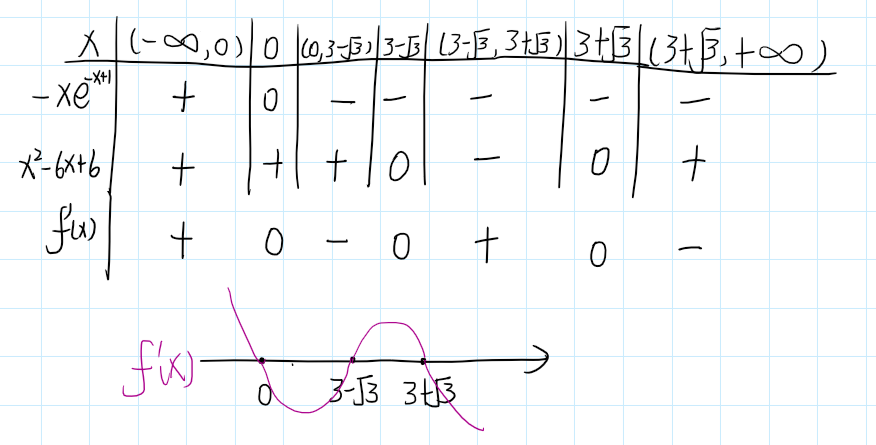 x (-∞,0) 0 (0,3-√3) 3-√3 (3-√3, 3+√3) 3+√3 (3+√3,+∞)
-xe^{-x+1} + 0 - - - - -
x²-6x+6 + + + 0 - 0 +
f'(x) + 0 - 0 + 0 -
f'(x)
0 3-√3 3+√3